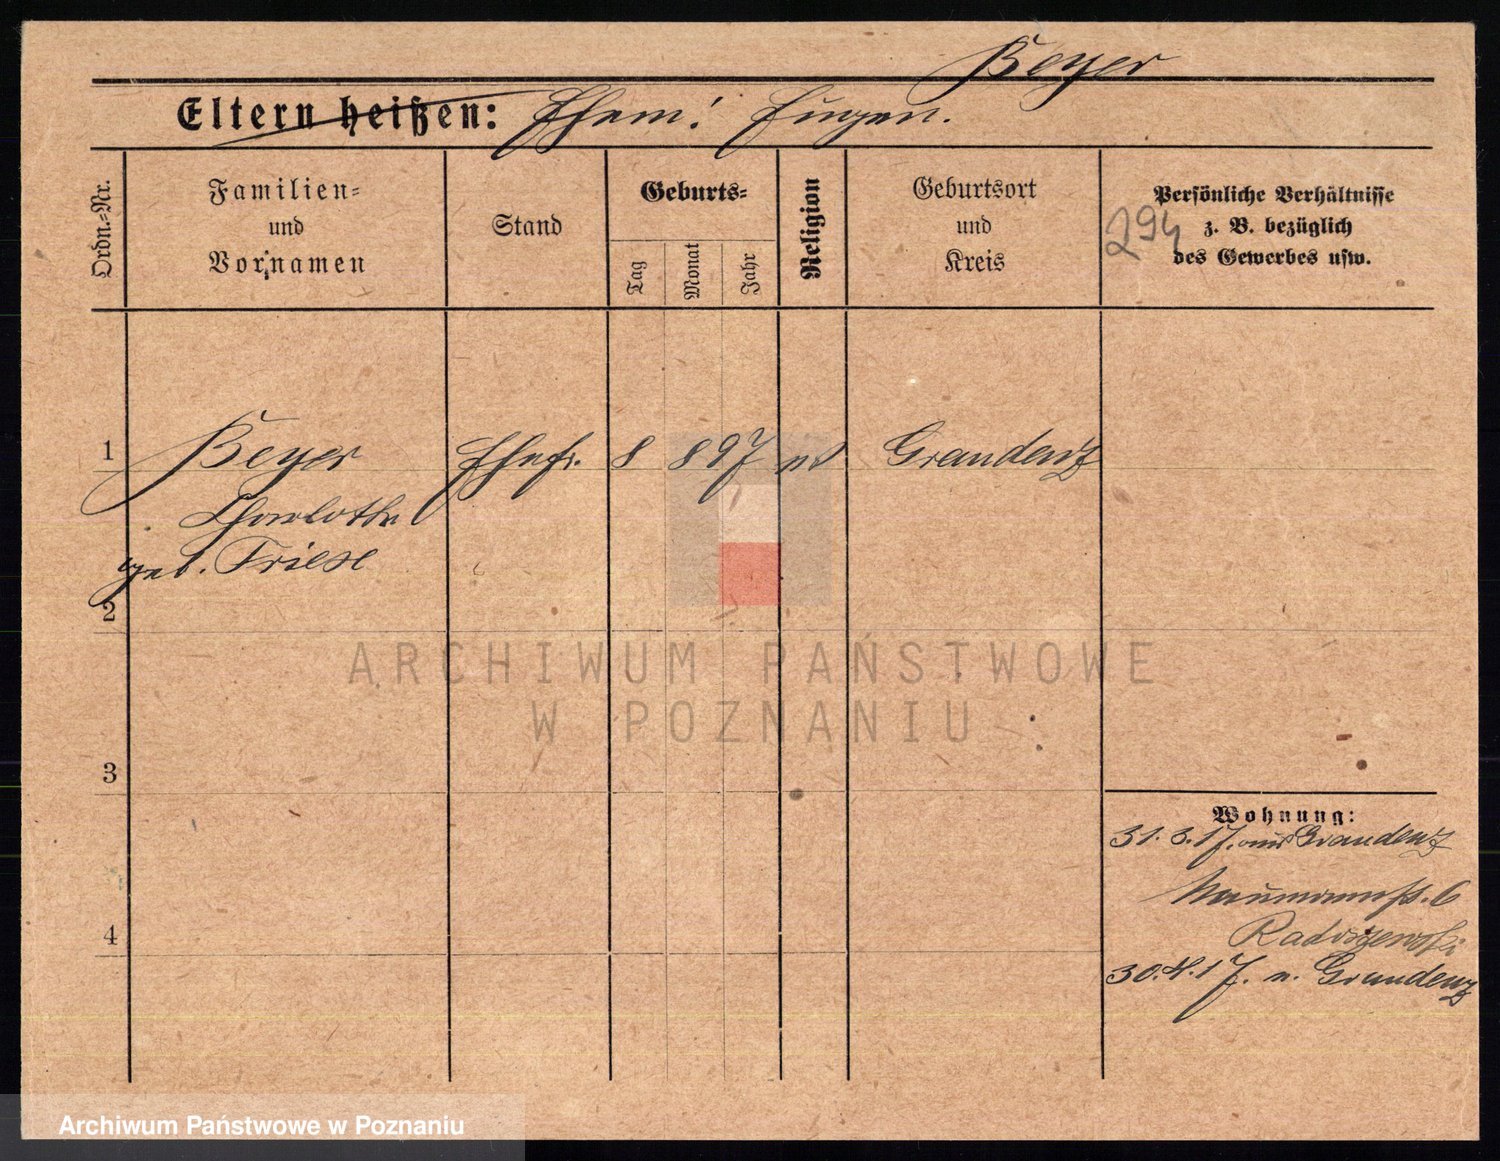 Beyer
Eltern heißen: Ehem. Eugen.
Ordn.-Nr.
Familien-
und
Vornamen
Stand
Geburts-
Tag
Monat
Jahr
Religion
Geburtsort
und
Kreis
Persönliche Verhältnisse
z. B. bezüglich
des Gewerbes usw.
294
1
Beyer
Ehefr.
8
8
97
Graudenz
Charlotte
geb. Friese
2
ARCHIWUM PAŃSTWOWE
W POZNANIU
3
Wohnung:
31. 3. 17. aus Graudenz
Naumannstr. 6
4
Radoszewski
30. 4. 17. n. Graudenz
Archiwum Państwowe w Poznaniu